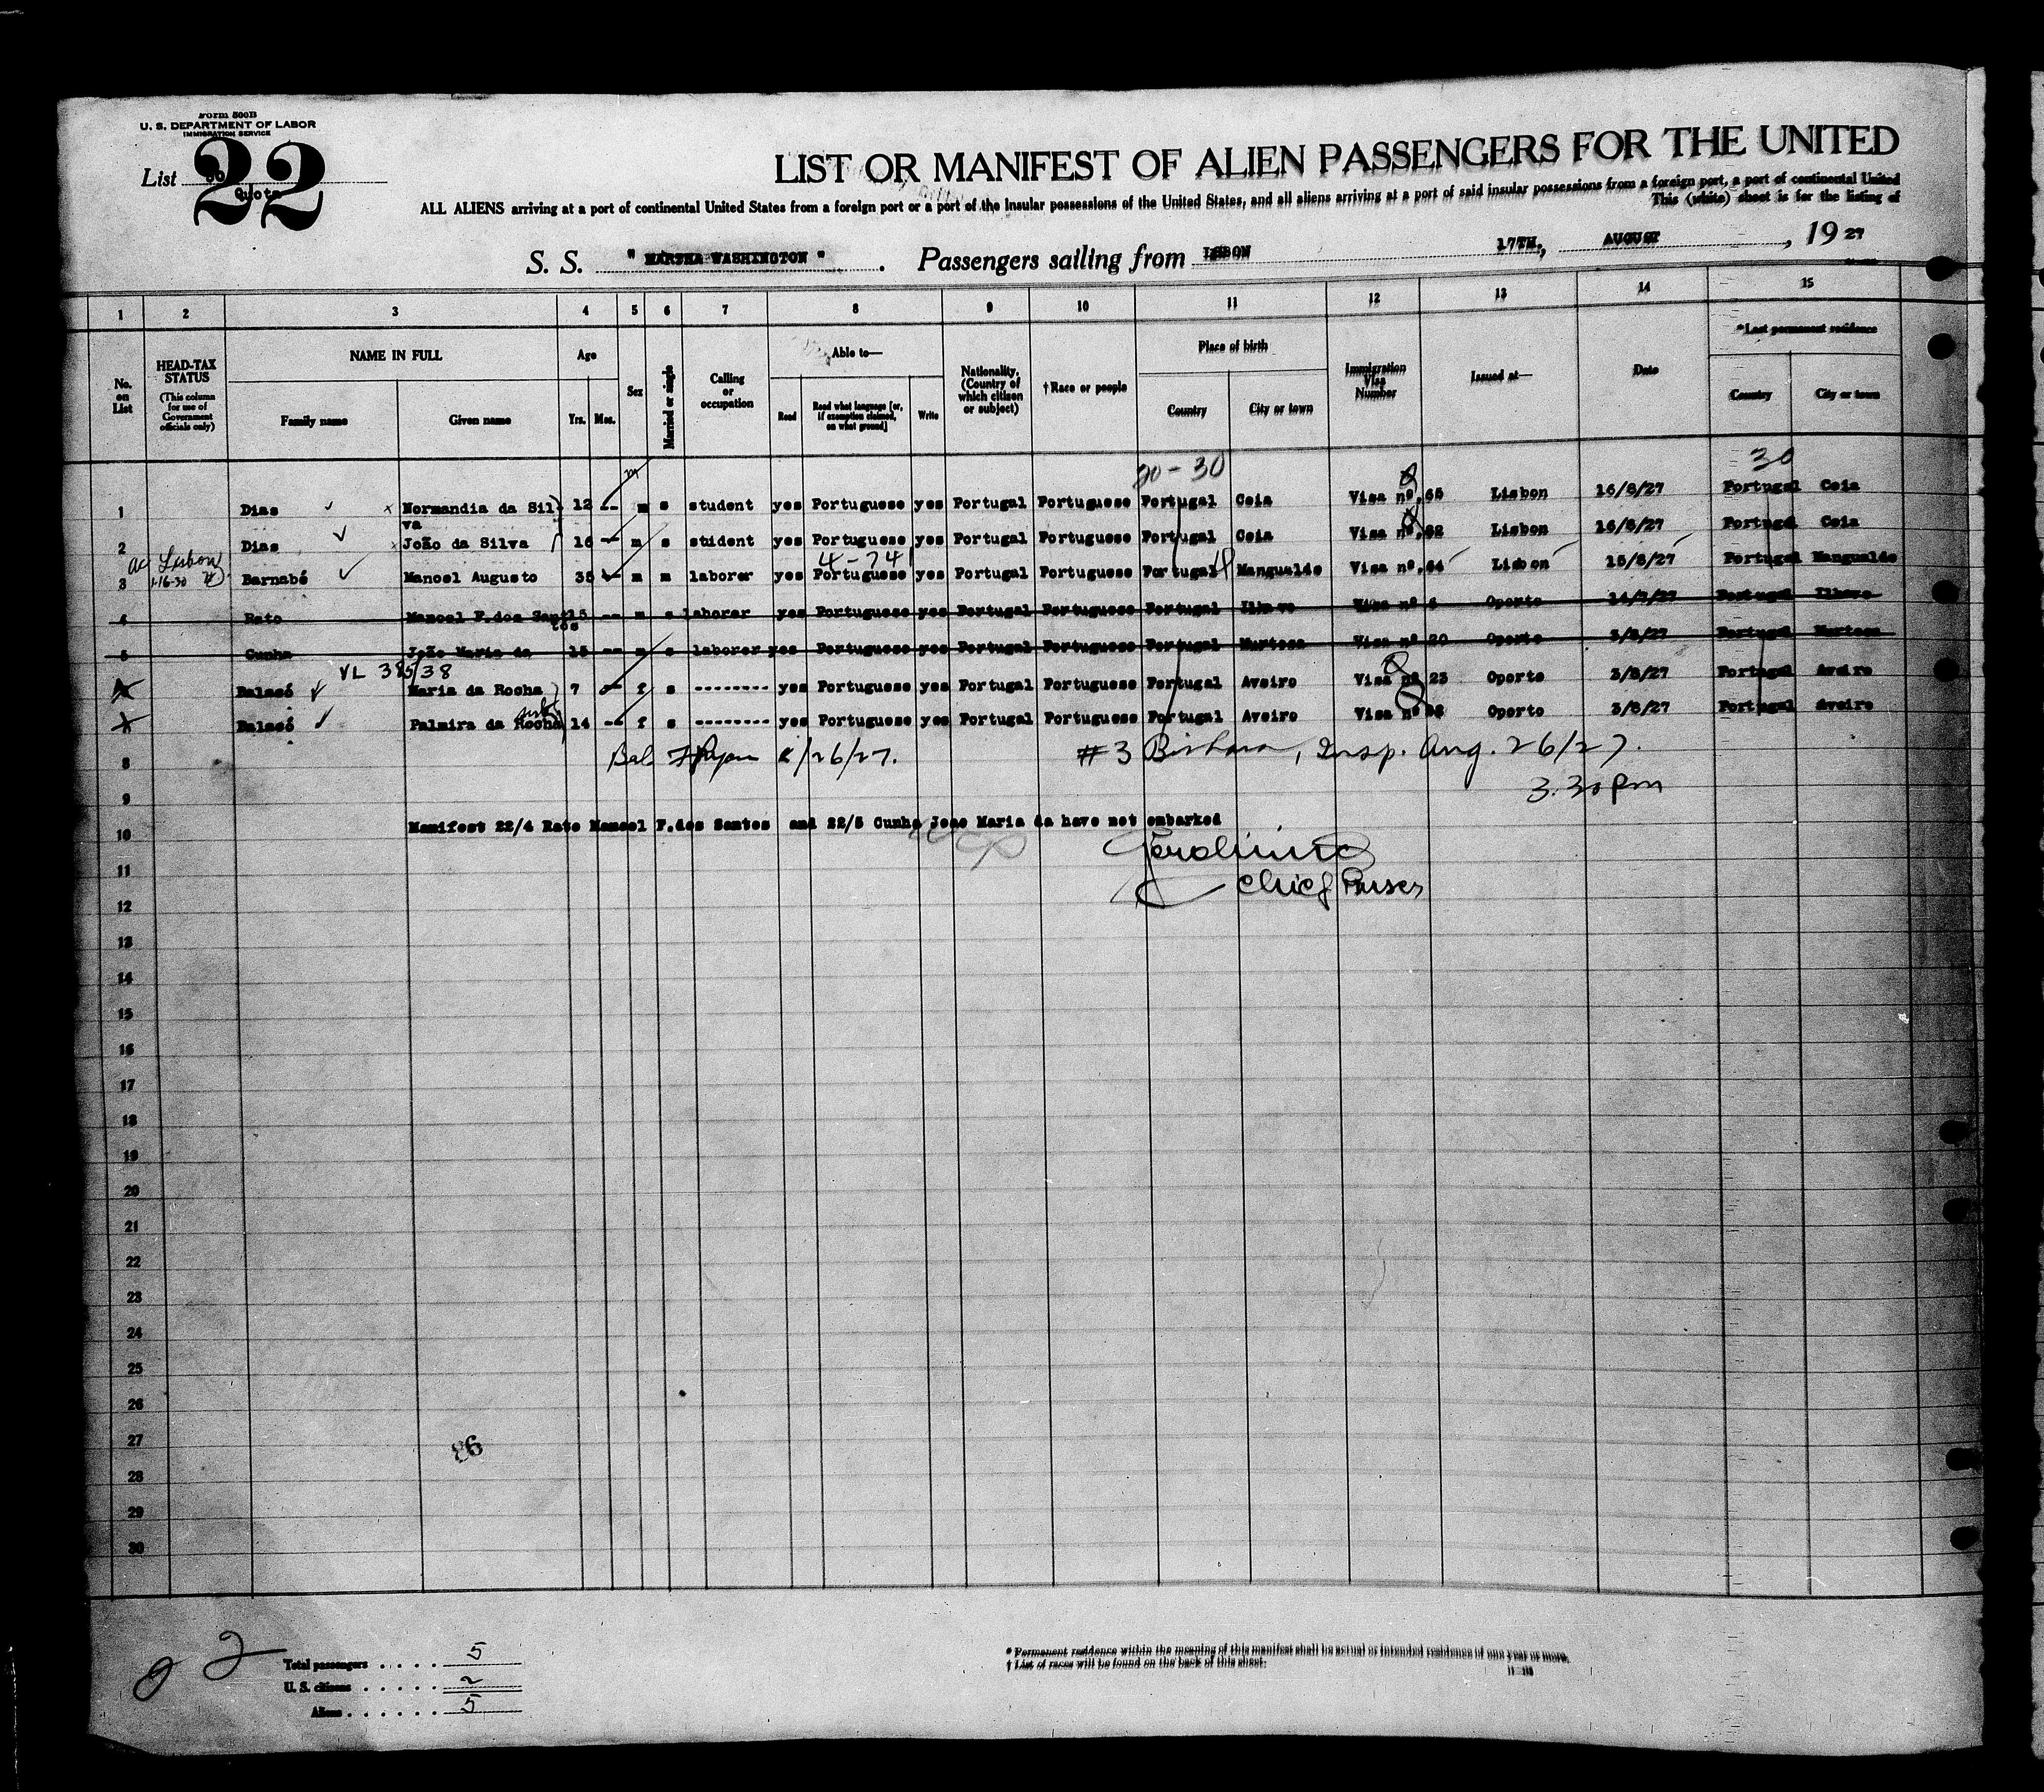 Form 500B
U. S. DEPARTMENT OF LABOR
IMMIGRATION SERVICE
List 22
Quota
LIST OR MANIFEST OF ALIEN PASSENGERS FOR THE UNITED
ALL ALIENS arriving at a port of continental United States from a foreign port or a port of the insular possessions of the United States, and all aliens arriving at a port of said insular possessions from a foreign port, a port of continental United
This (white) sheet is for the listing of
S. S. " MARTHA WASHINGTON " . Passengers sailing from LISBON 17TH, AUGUST , 19 27
1 2 3 4 5 6 7 8 9 10 11 12 13 14 15
No. on List
HEAD-TAX STATUS (This column for use of Government officials only)
NAME IN FULL
Family name Given name
Age
Yrs. Mos.
Sex
Married or single
Calling or occupation
Able to—
Read Read what language [or, if exemption claimed, on what ground] Write
Nationality. (Country of which citizen or subject)
† Race or people
Place of birth
Country City or town
Immigration Visa Number
Issued at—
Date
* Last permanent residence
Country City or town
20-30 30
1 Dias Normandia da Silva 12 -- m s student yes Portuguese yes Portugal Portuguese Portugal Ceia Visa nº 65 Lisbon 16/8/27 Portugal Ceia
2 Dias João da Silva 16 -- m s student yes Portuguese yes Portugal Portuguese Portugal Ceia Visa nº 62 Lisbon 16/8/27 Portugal Ceia
Lisbon
1-16-30
4-74
3 Barnabé Manoel Augusto 35 m m laborer yes Portuguese yes Portugal Portuguese Portugal Mangualde Visa nº 64 Lisbon 15/8/27 Portugal Mangualde
4 Rato Manoel F.dos Santos 15 -- m s laborer yes Portuguese yes Portugal Portuguese Portugal Ilhavo Visa nº 6 Oporto 14/7/27 Portugal Ilhavo
5 Cunha João Maria da 15 -- m s laborer yes Portuguese yes Portugal Portuguese Portugal Murtosa Visa nº 20 Oporto 3/8/27 Portugal Murtosa
VL 385/38
Balacó Maria da Rocha 7 -- f s -------- yes Portuguese yes Portugal Portuguese Portugal Aveiro Visa nº 23 Oporto 3/8/27 Portugal Aveiro
Balacó Palmira da Rocha 14 -- f s -------- yes Portuguese yes Portugal Portuguese Portugal Aveiro Visa nº Oporto 3/8/27 Portugal Aveiro
8 8/26/27. #3 Insp. Aug. 26/27.
3.30 pm
9
Manifest 22/4 Rato Manoel F.dos Santos and 22/5 Cunha Joao Maria da have not embarked
10
11 Chief Purser
12
13
14
15
16
17
18
19
20
21
22
23
24
25
26
27
28
29
30
Total passengers . . . . 5
U. S. citizens . . . . . 2
Aliens . . . . . . 5
* Permanent residence within the meaning of this manifest shall be actual or intended residence of one year or more.
† List of races will be found on the back of this sheet.